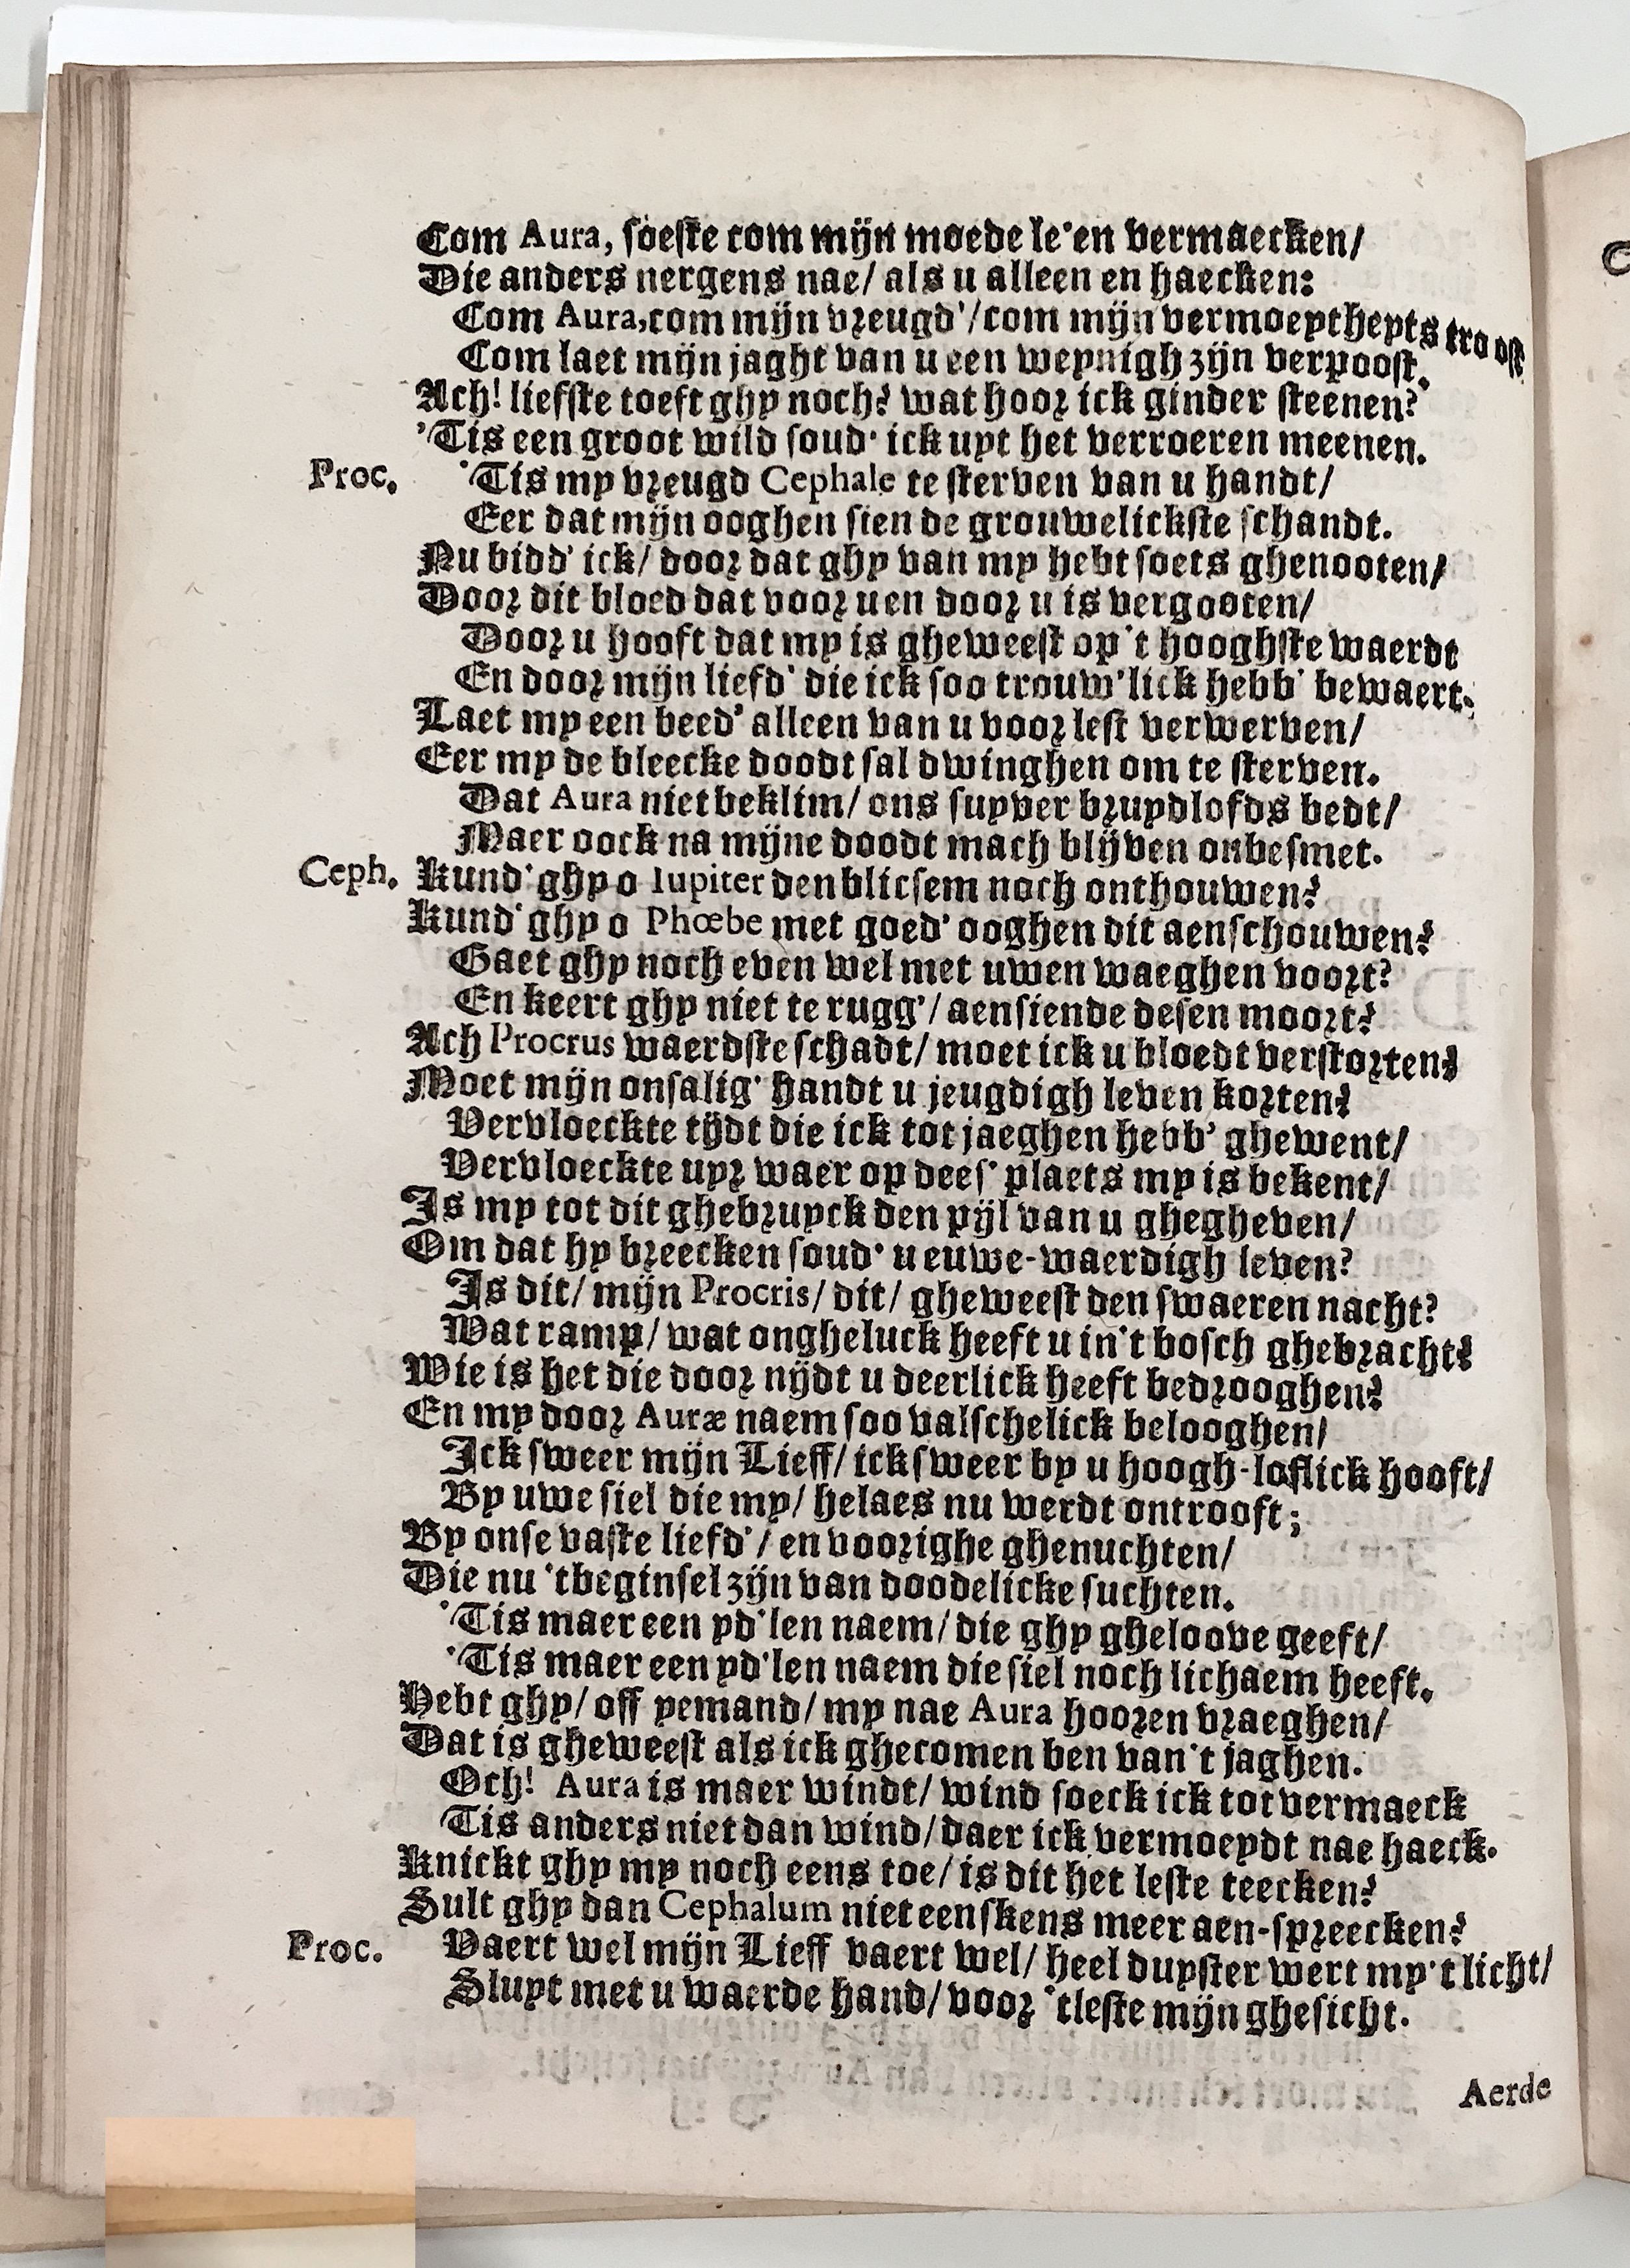 Com Aura, soeste com mijn moede le'en vermaecken/
Die anders nergens nae/ als u alleen en haecken:
Com Aura, com mijn vreugd'/ com mijn vermoeytheyts troost
Com laet mijn jaght van u een weynigh zijn verpoost.
Ach! liefste toeft ghy noch? wat hoor ick ginder steenen?
'Tis een groot wild soud' ick uyt het verroeren meenen.
Proc. 'Tis my vreugd Cephale te sterven van u handt/
Eer dat mijn ooghen sien de grouwelickste schandt.
Nu bidd' ick/ door dat ghy van my hebt soets ghenooten/
Door dit bloed dat voor u en door u is vergooten/
Door u hooft dat my is gheweest op 't hooghste waerdt
En door mijn liefd' die ick soo trouw'lick hebb' bewaert.
Laet my een beed' alleen van u voor lest verwerven/
Eer my de bleecke doodt sal dwinghen om te sterven.
Dat Aura niet beklim/ ons suyver bruydlofds bedt/
Maer oock na mijne doodt mach blijven onbesmet.
Ceph. Kund' ghy o Iupiter den blicsem noch onthouwen?
Kund' ghy o Phœbe met goed' ooghen dit aenschouwen?
Gaet ghy noch even wel met uwen waeghen voort?
En keert ghy niet te rugg'/ aensiende desen moort?
Ach Procrus waerdste schadt/ moet ick u bloedt verstorten?
Moet mijn onsalig' handt u jeugdigh leven korten?
Vervloeckte tijdt die ick tot jaeghen hebb' ghewent/
Vervloeckte uyr waer op dees' plaets my is bekent/
Is my tot dit ghebruyck den pijl van u ghegheven/
Om dat hy breecken soud' u euwe-waerdigh leven?
Is dit/ mijn Procris/ dit/ gheweest den swaeren nacht?
Wat ramp/ wat ongheluck heeft u in 't bosch ghebracht?
Wie is het die door nijdt u deerlick heeft bedrooghen?
En my door Auræ naem soo valschelick belooghen/
Ick sweer mijn Lieff/ ick sweer by u hoogh-loflick hooft/
By uwe siel die my/ helaes nu werdt ontrooft;
By onse vaste liefd'/ en voorighe ghenuchten/
Die nu 'tbeginsel zijn van doodelicke suchten.
'Tis maer een yd'len naem/ die ghy gheloove geeft/
'Tis maer een yd'len naem die siel noch lichaem heeft.
Hebt ghy/ off yemand/ my nae Aura hooren vraeghen/
Dat is gheweest als ick ghecomen ben van 't jaghen.
Och! Aura is maer windt/ wind soeck ick tot vermaeck
Tis anders niet dan wind/ daer ick vermoeydt nae haeck.
Knickt ghy my noch eens toe/ is dit het leste teecken?
Sult ghy dan Cephalum niet eenskens meer aen-spreecken?
Proc. Vaert wel mijn Lieff vaert wel/ heel duyster wert my 't licht/
Sluyt met u waerde hand/ voor 'tleste mijn ghesicht.
Aerde